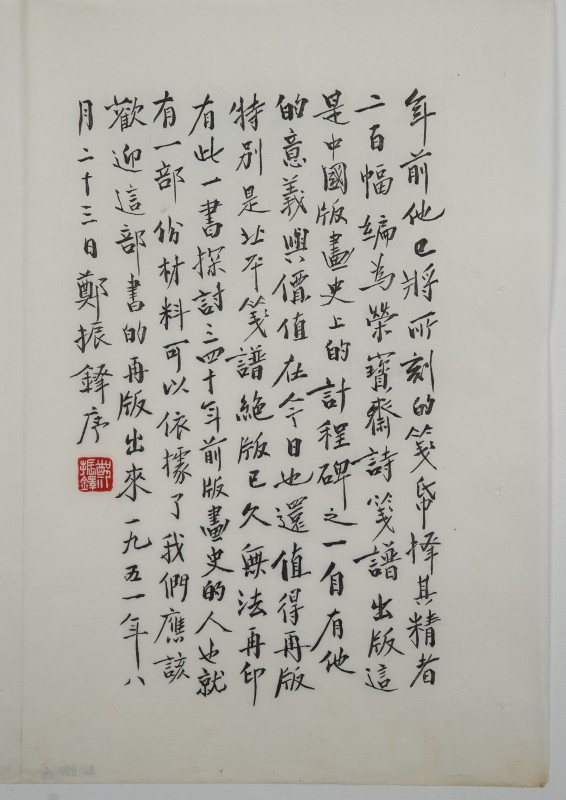 年前他已將所刻的箋帋擇其精者
二百幅編為榮寶齋詩箋譜出版這
是中國版畫史上的計程碑之一自有他
的意義與價值在今日也還值得再版
特別是北平箋譜絕版已久無法再印
有此一書探討三四十年前版畫史的人也就
有一部份材料可以依據了我們應該
歡迎這部書的再版出來一九五一年八
月二十三日鄭振鐸序
鄭振鐸